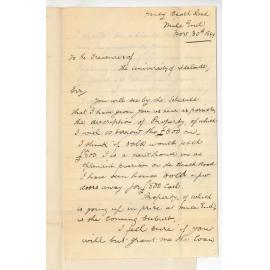 Henley Beach Road
Mile End
Nov 30th 1899
To the Treasurer of
the University of Adelaide,
Sir,
You will see by the Schedule
that I have given you as near as possible
the description of Property, of which
I wish to borrow the £600 on,
I think if sold would fetch
£800. It is a new house in an
position on the Beach Road
I have seen houses sold a few
doors away for £800 Cash.
Property, of which
is going up in price at Mile End,
is the coming Suburb.
I feel sure if you
will but grant me the Loan